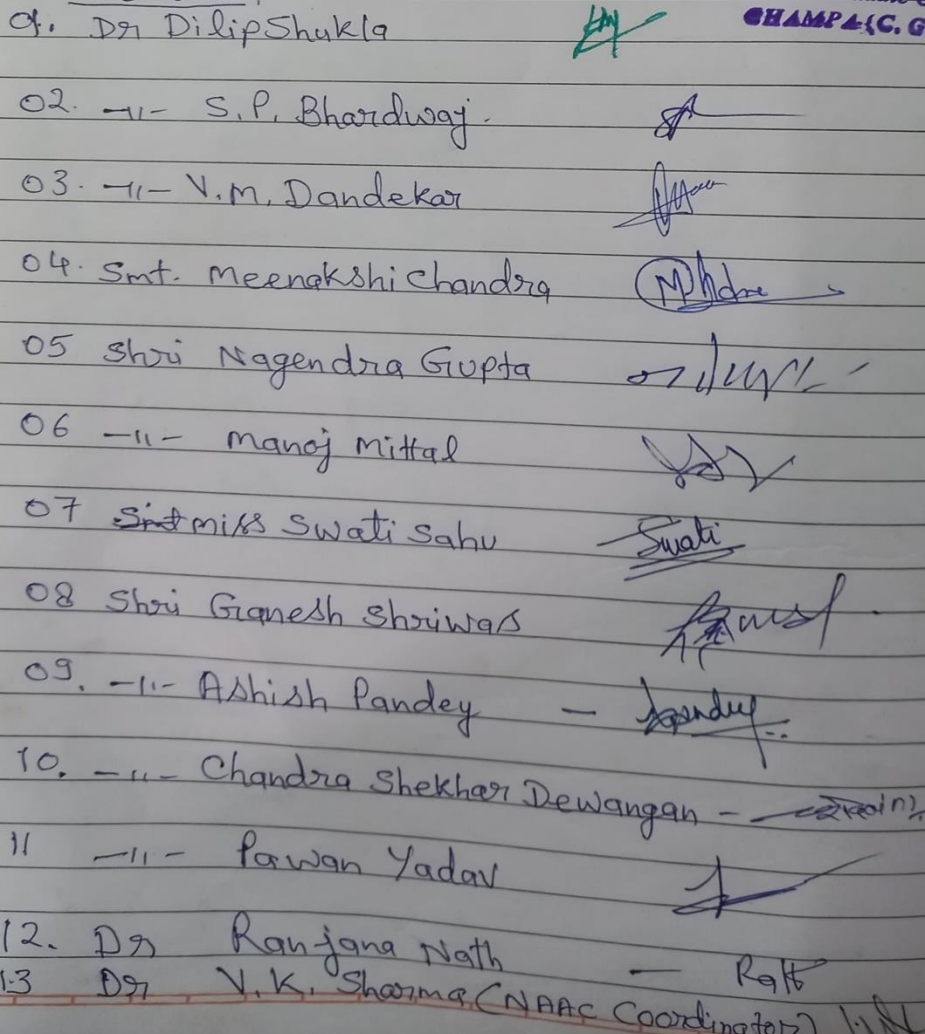 01. Dr Dilip Shukla CHAMPA (C.G
02. -11- S.P. Bhardwaj.
03. -11- V.M. Dandekar
04. Smt. Meenakshi Chandra
05 Shri Nagendra Gupta
06 -11- Manoj Mittal
07 Miss Swati Sahu Swati
08 Shri Ganesh Shriwas
09. -11- Ashish Pandey -
10. -11- Chandra Shekhar Dewangan -
11 -11- Pawan Yadav
12. Dr Ranjana Nath -
13 Dr V.K. Sharma (NAAC Coordinator)